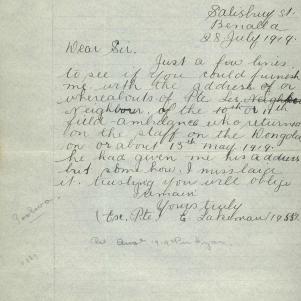 Salisbury St.
Benalla
28 July 1919.
Dear Sir.
Just a few lines
to see if you could furnish
me with the address of or
whereabouts of Pte
Neighbour, of the 11th
field ambulance who returned
on the staff on the Dongola
on or about 15th May 1919.
he had given me his address
but some how. I misslaid
it. trusting you will oblige
I remain
Yours truly
(Exc. Pte) E